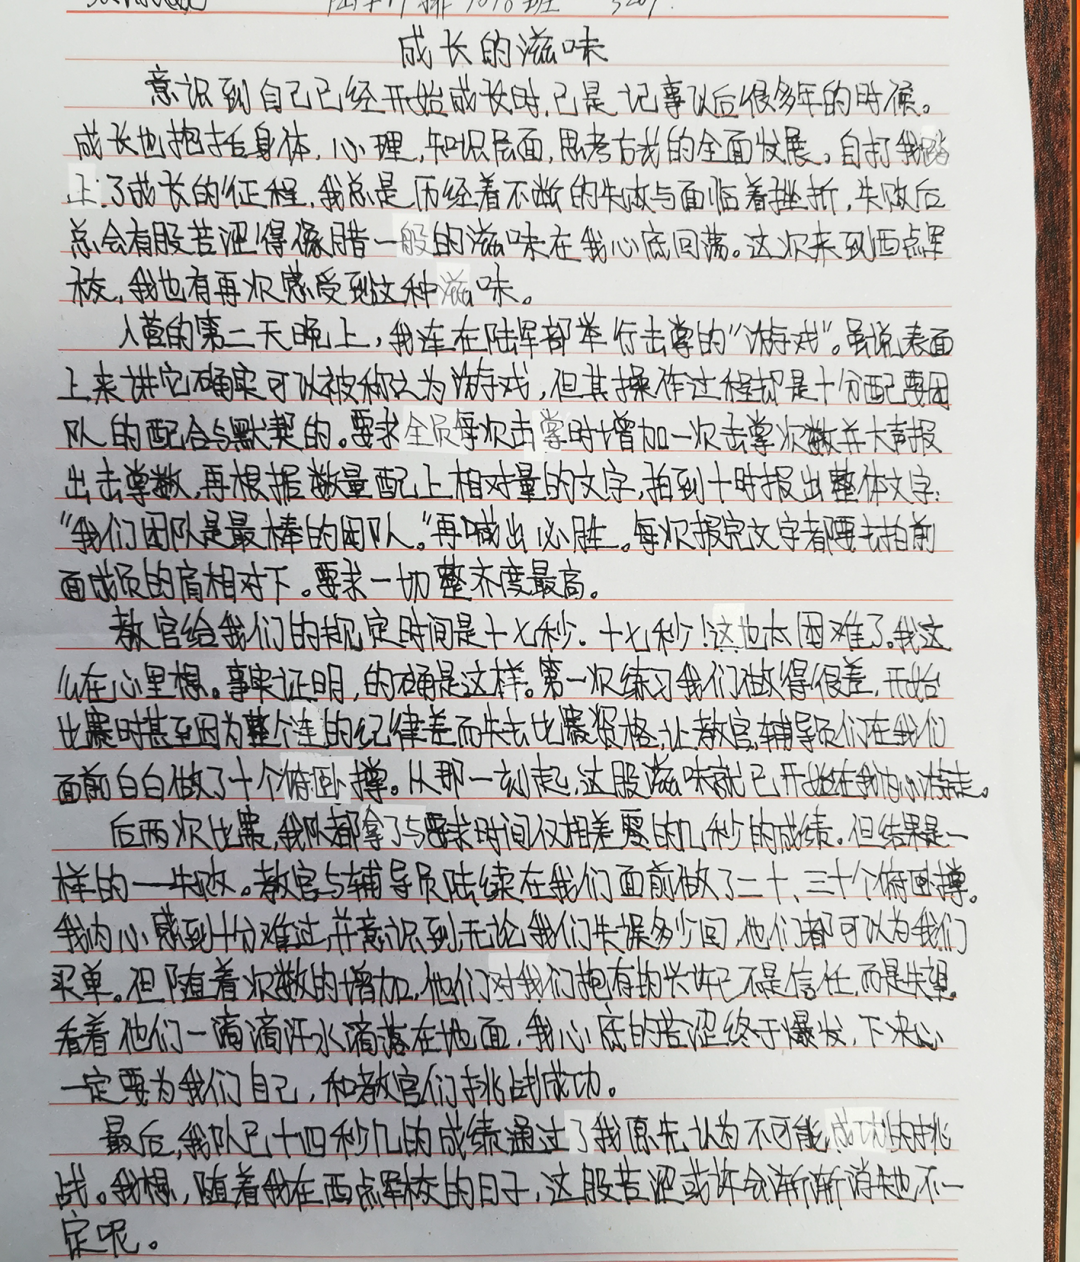 成长的滋味
意识到自己已经开始成长时,已是记事以后很多年的时候。
成长也抱括身体,心理,知识层面,思考方式的全面发展。自打我踏
上了成长的征程,我总是历经着不断的失败与面临着挫折,失败后
总会有股苦涩得像腊一般的滋味在我心底回荡。这次来到西点军
校,我也有再次感受到这种滋味。
入营的第二天晚上,我连在陆军部举行击掌的“游戏”。虽说表面
上来讲它确实可以被称之为游戏,但其操作过程却是十分配要团
队的配合与默契的。要求全员每次击掌时增加一次击掌次数并大声报
出击掌数,再根据数量配上相对量的文字,拍到十时报出整体文字:
“我们团队是最棒的团队。”再喊出必胜。每次报完文字都要去拍前
面成员的肩相对下。要求一切整齐度最高。
教官给我们的规定时间是十七秒.十七秒!这也太困难了。我这
么在心里想。事实证明,的确是这样。第一次练习我们做得很差,开始
比赛时甚至因为整个连的纪律差而失去比赛资格,让教官,辅导员们在我们
面前白白做了十个俯卧撑。从那一刻起,这股滋味就已开始在我内心游走。
后两次比赛,我队都拿了与要求时间仅相差零的几秒的成绩。但结果是一
样的一一失败。教官与辅导员陆续在我们面前做了二十、三十个俯卧撑。
我内心感到十分难过,并意识到无论我们失误多少回,他们都可以为我们
买单。但随着次数的增加,他们对我们抱有的兴许已不是信任,而是失望。
看着他们一滴滴汗水滴落在地面,我心底的苦涩终于爆发,下决心
一定要为我们自己,和教官们挑战成功。
最后,我队已十四秒几的成绩通过了我原先认为不可能成功的挑
战。我想,随着我在西点军校的日子,这股苦涩或许会渐渐消失也不一
定呢。